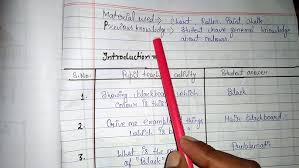 Material used → Chart, Roller, Paint, Chalk
Previous knowledge → Student have general knowledge
about colours.
Introduction
S.No. Pupil teacher activity Student answer
1. Showing blackboard which Black
colour is this
2. Give me example things Hair, blackboard
which is b
3. What is the Problematic
of "Black"